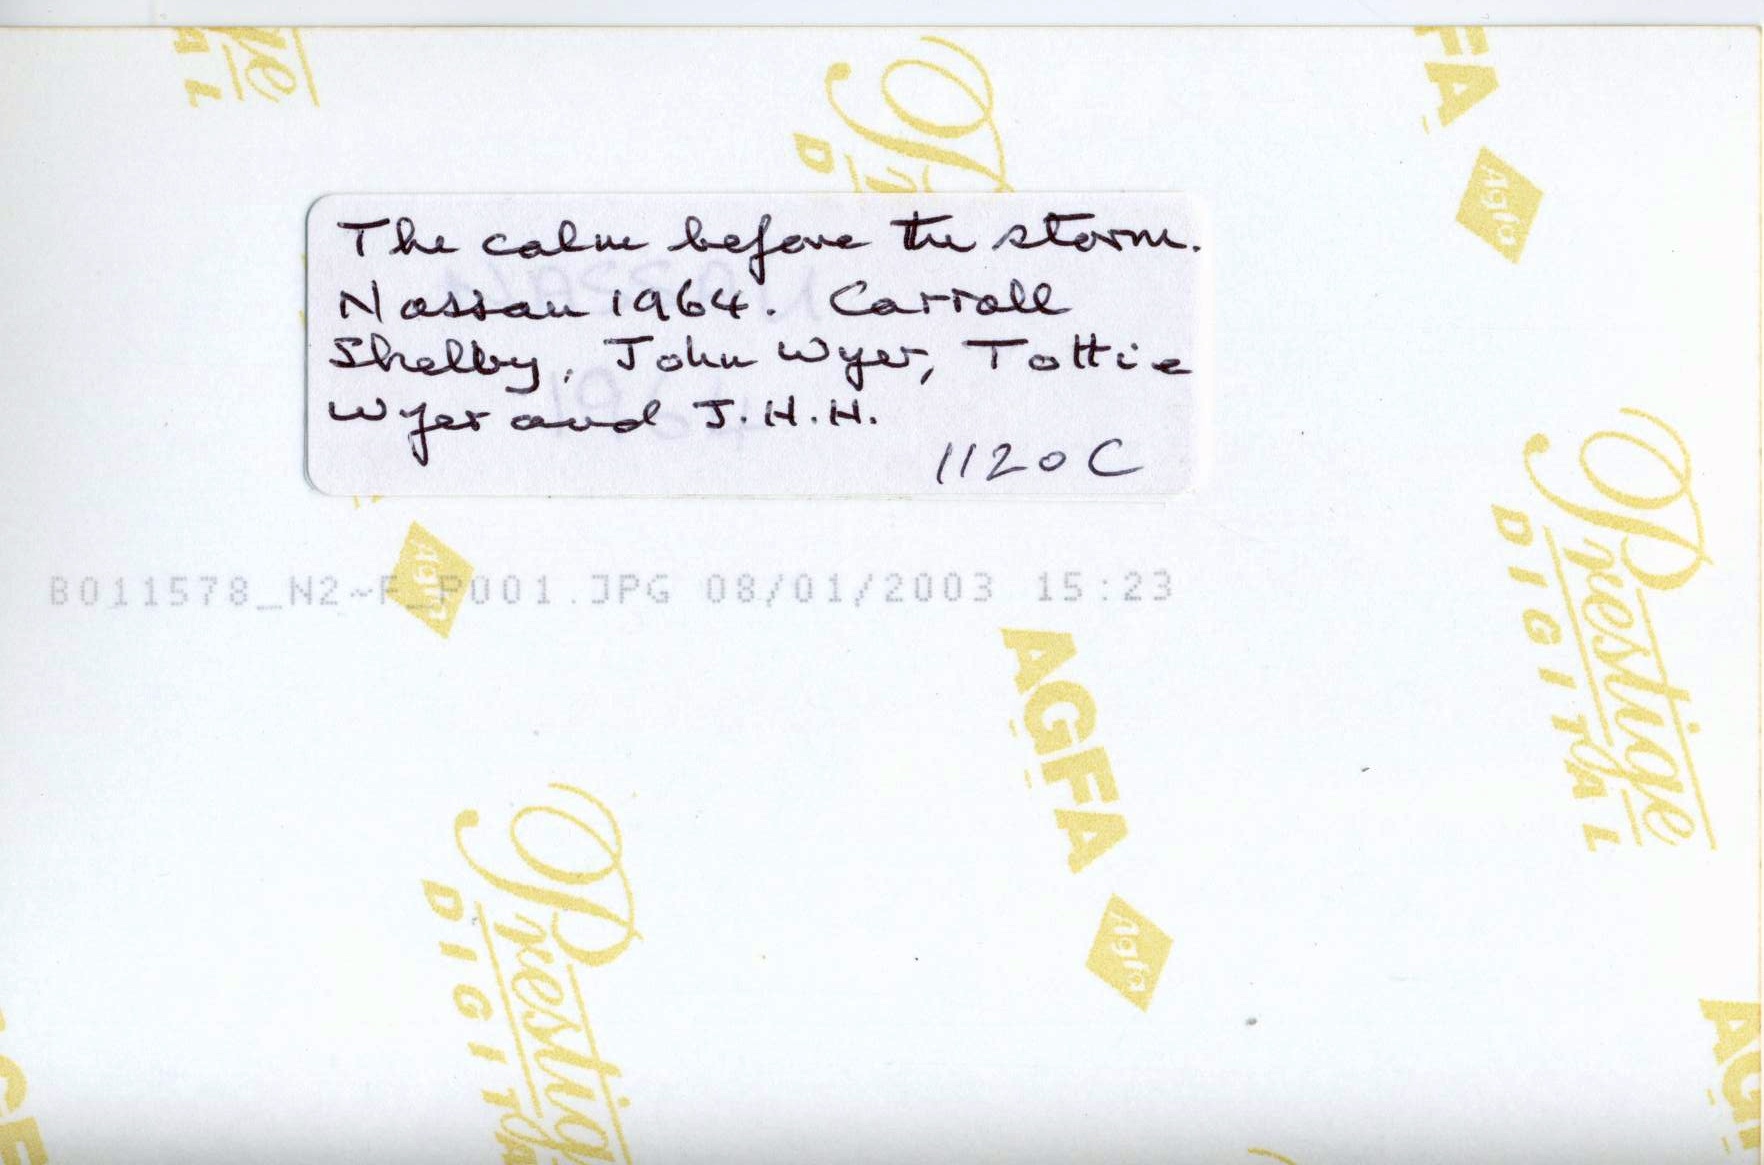 ge
AL
Prestige
D
FA
Agfa
The calm before the storm.
Nassau 1964. Carroll
Shelby, John Wyer, Tottie
Wyer and J.H.H.
1120C
Agfa
B011578_N2~F_P001.JPG 08/01/2003 15:23
Prestige
DIGITAL
AGFA
Agfa
Prestige
DIGITA
AGF